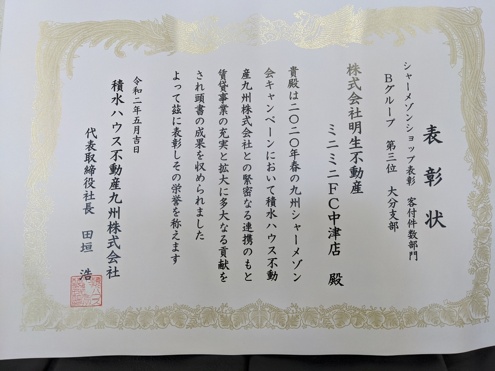 表彰状
シャーメゾンショップ表彰 客付件数部門
Bグループ 第三位 大分支部
株式会社明生不動産
ミニミニFC中津店 殿
貴殿は二〇二〇年春の九州シャーメゾン
会キャンペーンにおいて積水ハウス不動
産九州株式会社との緊密なる連携のもと
賃貸事業の充実と拡大に多大なる貢献を
され頭書の成果を収められました
よって茲に表彰しその栄誉を称えます
令和二年五月吉日
積水ハウス不動産九州株式会社
代表取締役社長 田垣 浩